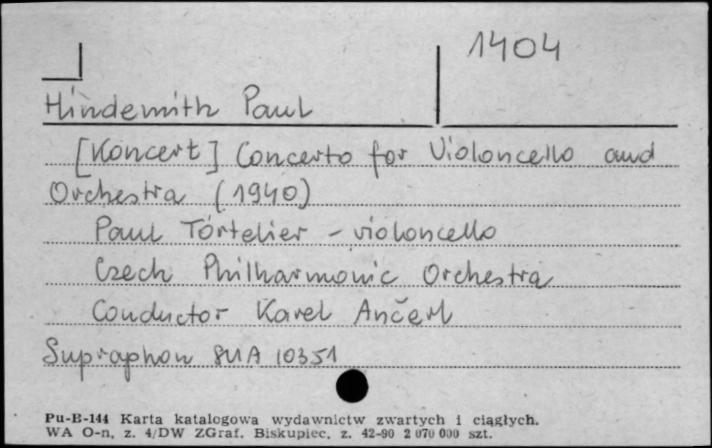 1404
Hindemith Paul
[Koncert] Concerto for Violoncello and
Orchestra (1940)
Paul Tórtelier - violoncello
Czech Philharmonic Orchestra
Conductor Karel Ančerl
Supraphon SUA 10351
Pu-B-144 Karta katalogowa wydawnictw zwartych i ciągłych.
WA O-n, z. 4/DW ZGraf. Biskupiec, z. 42-90 2 070 000 szt.